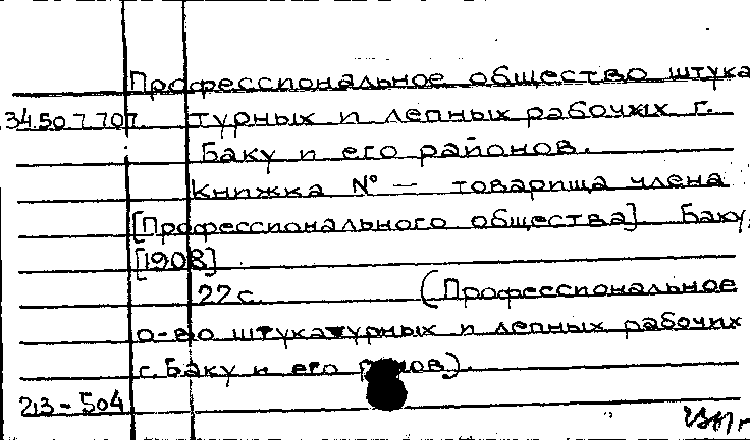 Профессиональное общество штука
34.50 7 707. турных и лепных рабочих г.
Баку и его районов.
Книжка № — товарища члена
[Профессионального общества]. Баку,
[1908].
22 с. (Профессиональное
о-во штукатурных и лепных рабочих
г. Баку и его).
213-504